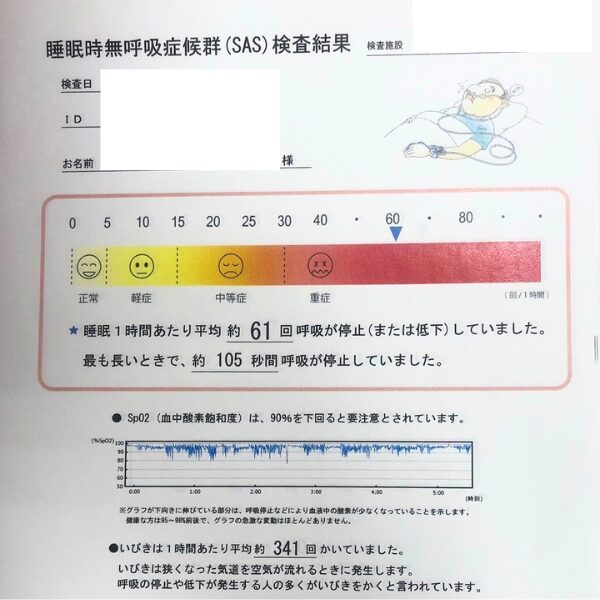 睡眠時無呼吸症候群(SAS)検査結果 検査施設
検査日
ID
お名前 様
0 5 10 15 20 25 30 40 ・ 60 ・ 80 ・ ・
正常 軽症 中等症 重症 (回/1時間)
★ 睡眠1時間あたり平均 約 61 回 呼吸が停止(または低下)していました。
最も長いときで、約 105 秒間 呼吸が停止していました。
● SpO2(血中酸素飽和度)は、90%を下回ると要注意とされています。
(%SpO2)
100
90
80
70
60
50
0:00 1:00 2:00 3:00 4:00 5:00 (時刻)
※グラフが下向きに伸びている部分は、呼吸停止などにより血液中の酸素が少なくなっていることを示します。
健康な方は95~98%前後で、グラフの急激な変動はほとんどありません。
●いびきは1時間あたり平均 約 341 回 かいていました。
いびきは狭くなった気道を空気が流れるときに発生します。
呼吸の停止や低下が発生する人の多くがいびきをかくと言われています。